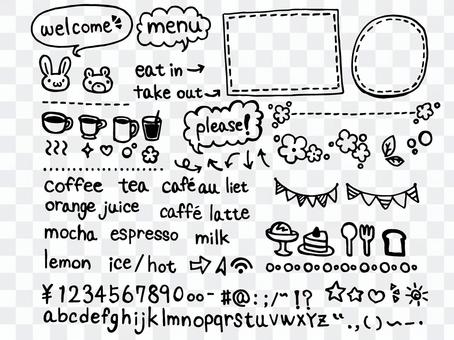 welcome
menu
eat in →
take out →
please!
coffee tea café au liet
orange juice caffé latte
mocha espresso milk
lemon ice/hot
¥1234567890oo- #@:;/~"!?
abcdefghijklmnopqrstuvwxyz "".,()~-.